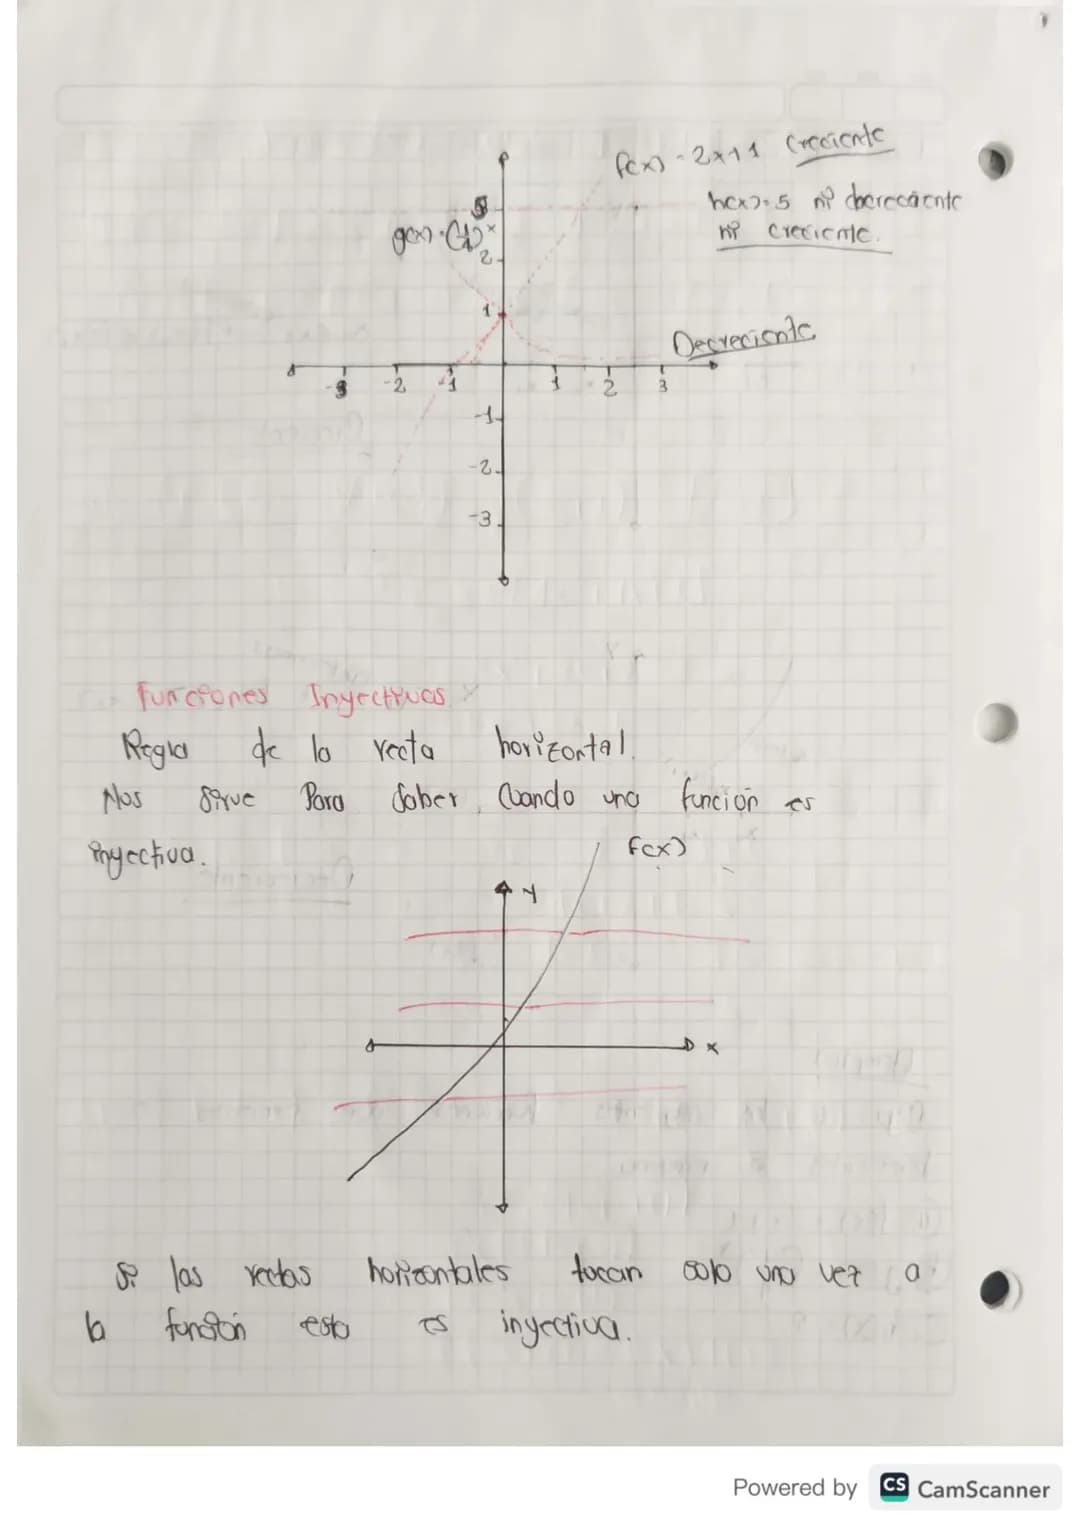 f(x) = 2x+1 Creciente
h(x) = 5 ni decreciente
ni creciente.
5
g(x) = (1/2)^x
2
1
Decreciente
-3 -2 -1 1 2 3
-1
-2
-3
Funciones Inyectivas
Regla de la recta horizontal.
Nos sirve Para Saber Cuando una función es
inyectiva.
f(x)
y
x
Si las rectas horizontales tocan solo una vez a
la función esta es inyectiva.
Powered by CS CamScanner